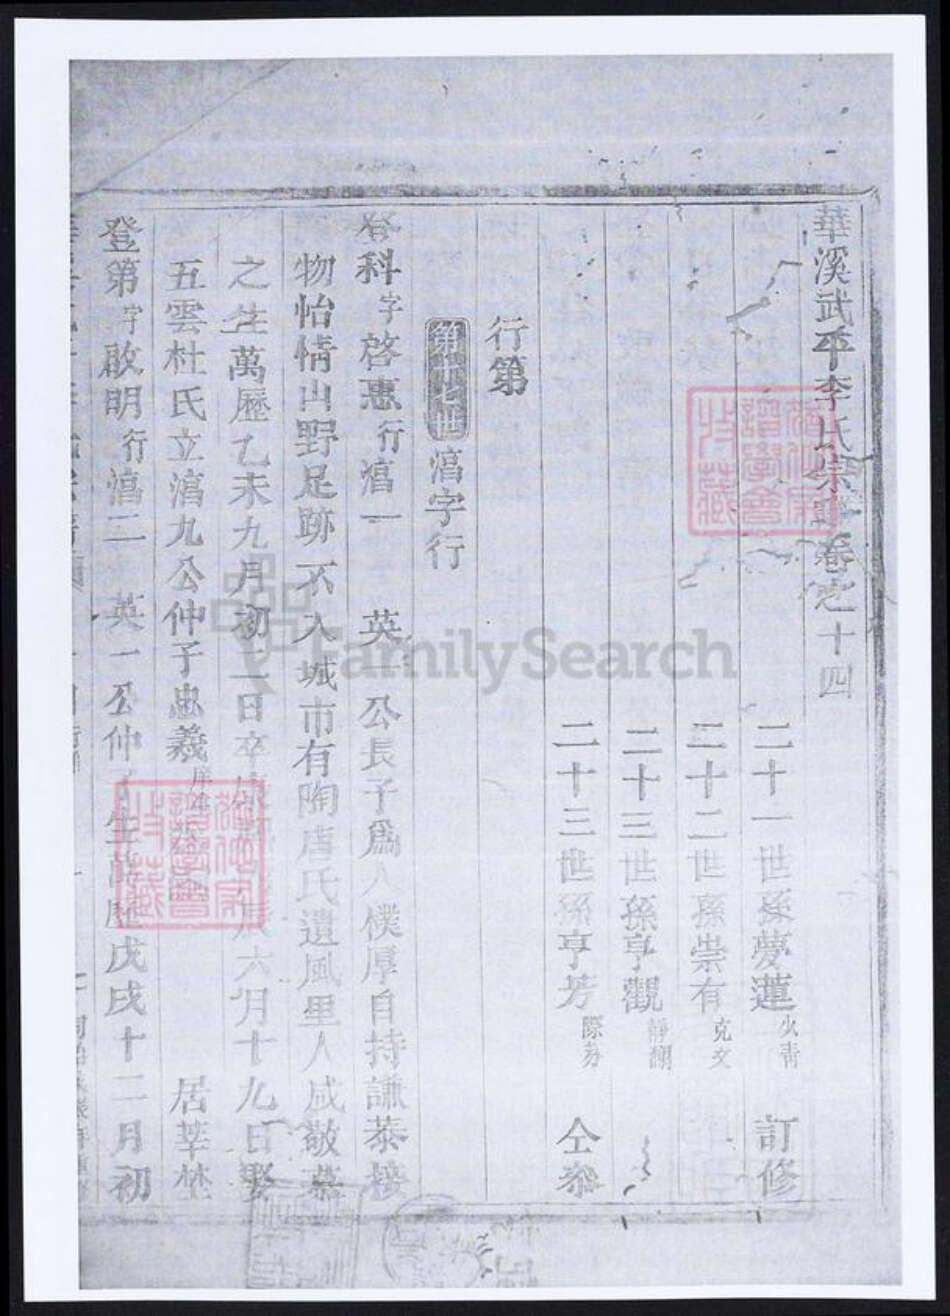 華溪武平李氏宗譜卷之十四
二十一世孫夢蓮 火青 訂修
二十二世孫崇有 克文
二十三世孫亨觀
二十三世孫亨芳 際芬 仝叅
行第
滈字行
登科字啓惠行滈一 英 公長子爲人樸厚自持謙恭接
物怡情山野足跡不入城市有陶唐氏遺風里人咸敬慕
之生萬歷乙未九月初二日卒 六月十九日娶
五雲杜氏立滈九公仲子忠義 居莘塋
登第字啟明行滈二 英一公仲子生萬歷戊戌十二月初
FamilySearch